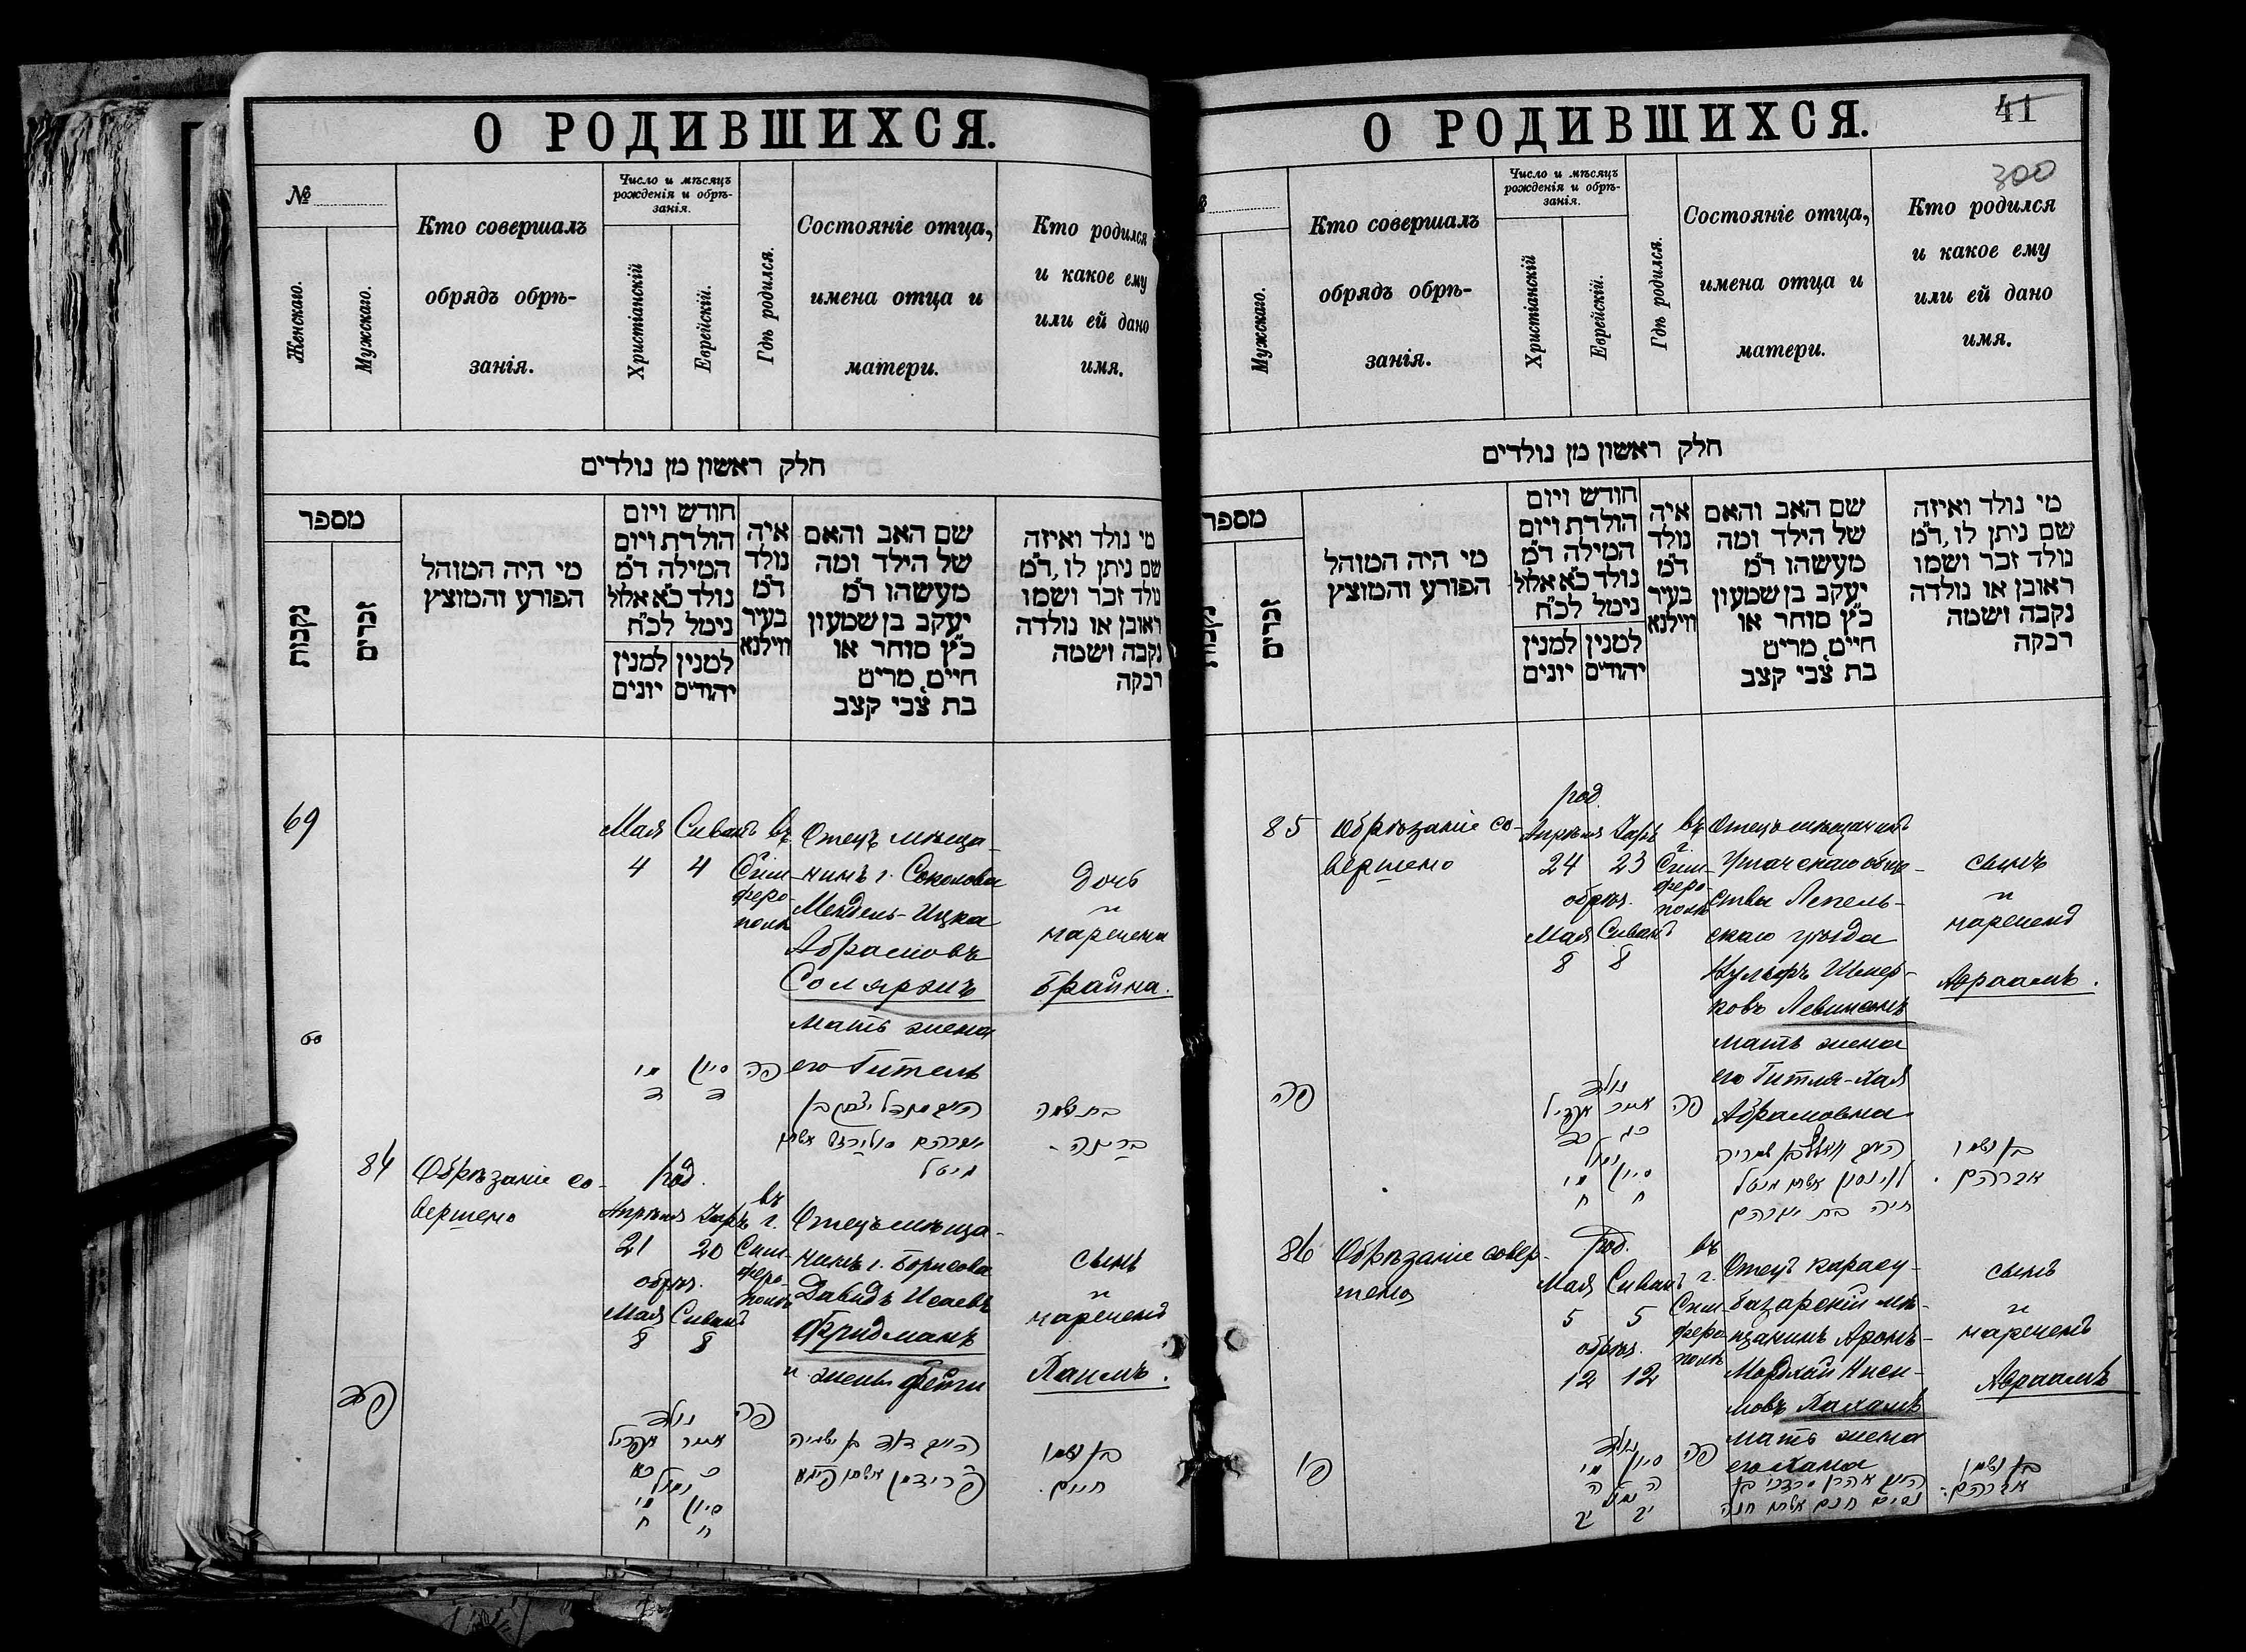 О РОДИВШИХСЯ.
№
Женскаго.
Мужскаго.
Кто совершалъ
обрядъ обрѣ-
занія.
Число и мѣсяцъ
рожденія и обрѣ-
занія.
Христіанскій
Еврейскій.
Гдѣ родился.
Состояніе отца,
имена отца и
матери.
Кто родился
и какое ему
или ей дано
имя.
חלק ראשון מן נולדים
מספר
נקבות
זכרים
מי היה המוהל
הפורע והמוצץ
חודש ויום
הולדת ויום
המילה ד״מ
נולד כ״א אלול
נימל לכ״ח
למנין
יונים
למנין
יהודים
איה
נולד
ד״מ
בעיר
ווילנא
שם האב והאם
של הילד ומה
מעשהו ד״מ
יעקב בן שמעון
כ״ץ סוחר או
חיים, מרים
בת צבי קצב
מי נולד ואיזה
שם ניתן לו, ד״מ
נולד זכר ושמו
ראובן או נולדה
נקבה ושמה
רבקה
69
Мая
4
Сиванъ
4
въ
Сим-
феро-
полѣ
Отецъ мѣща-
нинъ г. Соколова
Мендель-Ицка
Абрамовъ
Солярзиъ
мать жена
его Гитель
Дочь
и
наречена
Брайна.
מיי
ד
סיון
ד
פה
בת ושמה
84
Обрѣзаніе со-
вершено
род.
Апрѣля
21
Iаръ
20
обрѣз.
Мая
8
Сиванъ
8
въ
г.
Сим-
феро-
полѣ
Отецъ мѣща-
нинъ г. Борисова
Давидъ Исаевъ
Фридманъ
и жены Фейги
сынъ
и
нареченъ
Хаимъ.
פד
נולד
אפריל
כא
אייר
כ
נימול
מיי
ח
סיון
ח
פה
בן ושמו
חיים.
О РОДИВШИХСЯ.
41
300
Мужскаго.
Кто совершалъ
обрядъ обрѣ-
занія.
Число и мѣсяцъ
рожденія и обрѣ-
занія.
Христіанскій
Еврейскій.
Гдѣ родился.
Состояніе отца,
имена отца и
матери.
Кто родился
и какое ему
или ей дано
имя.
חלק ראשון מן נולדים
מספר
נקבות
זכרים
מי היה המוהל
הפורע והמוצץ
חודש ויום
הולדת ויום
המילה ד״מ
נולד כ״א אלול
נימל לכ״ח
למנין
יונים
למנין
יהודים
איה
נולד
ד״מ
בעיר
ווילנא
שם האב והאם
של הילד ומה
מעשהו ד״מ
יעקב בן שמעון
כ״ץ סוחר או
חיים, מרים
בת צבי קצב
מי נולד ואיזה
שם ניתן לו, ד״מ
נולד זכר ושמו
ראובן או נולדה
נקבה ושמה
רבקה
85
Обрѣзаніе со-
вершено
род.
Апрѣля
24
Iаръ
23
обрѣз.
Мая
8
Сиванъ
8
въ
г.
Сим-
феро-
полѣ
Отецъ мѣщанинъ
Ушачскаго обще-
ства Лепель-
скаго уѣзда
Шмер-
ковъ Левинсонъ
мать жена
его Гитля-Хая
Абрамовна
сынъ
и
нареченъ
Авраамъ.
פה
נולד
אפריל
כד
אייר
כג
נימול
מיי
ח
סיון
ח
פה
לוינסון אשתו גיטל
חיה בת אברהם
בן ושמו
אברהם.
86
Обрѣзаніе совер-
шено
род.
Мая
5
Сиванъ
5
обрѣз.
12
12
въ
г.
Сим-
феро-
полѣ
Отецъ карасу-
базарскій мѣ-
щанинъ Аронъ-
Мордхай Ниси-
мовъ Хахамъ
мать жена
его Хана
сынъ
и
нареченъ
Авраамъ
פו
נולד
מיי
ה
סיון
ה
נימול
יב
יב
פה
אהרן מרדכי בן
נסים חכם אשתו חנה
בן ושמו
אברהם.